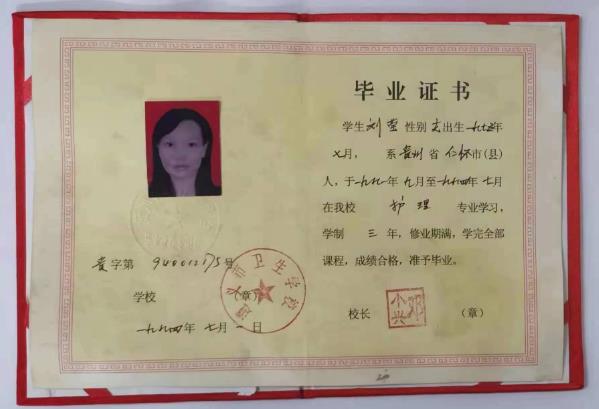 毕业证书
学生刘莹性别女出生一九七三年
七月，系贵州省仁怀市(县)
人，于一九九一年九月至一九九四年七月
在我校 护理 专业学习，
学制 三 年，修业期满，学完全部
课程，成绩合格，准予毕业。
校长 (章)
贵字第 940012175号
学校 (章)
遵义市卫生学校
一九九四年七月一日